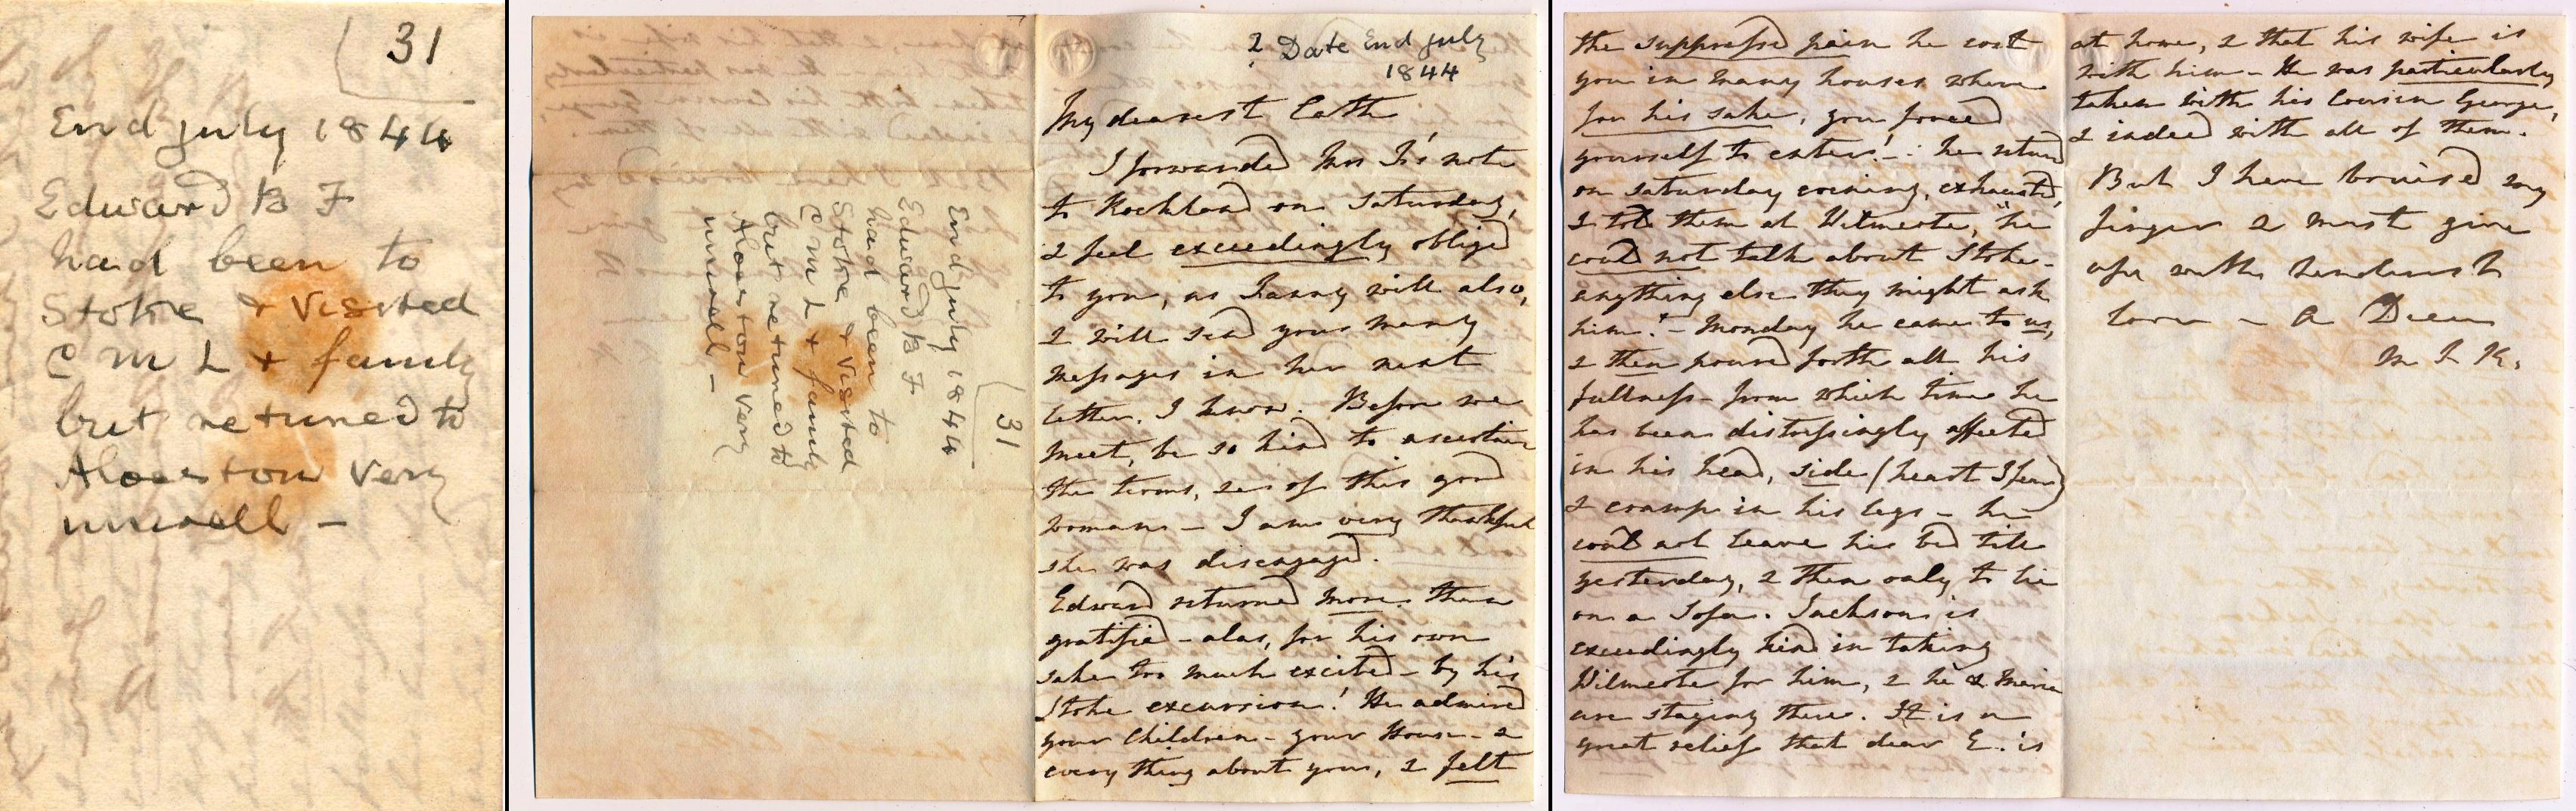 31
End July 1844
Edward B F
had been to
Stoke & visited
C M L & family
but retuned to
Alveston very
unwell –
31
End July 1844
Edward B F
had been to
Stoke & visited
C M L & family
but retuned to
Alveston very
unwell –
? Date End July
1844
My dearest Cath
I forwarded Mrs I's note
to Rockland on Saturday,
& feel exceedingly obliged
to you, as Fanny will also,
& will send your many
messages in her next
letter, I know. Before we
meet, be so kind to ascertain
the terms, &c of this good
woman – I am very thankful
she was disengaged.
Edward returned more than
gratified – alas, for his own
sake too much excited – by his
Stoke excursion! He admired
your Children – your House – &
every thing about you, & felt
the suppressed pain he cost
you in many houses where
for his sake, you forced
yourself to enter! – he returned
on Saturday evening, exhausted,
& told them at Wilmcote, "he
could not talk about Stoke –
anything else they might ask
him." – Monday he came to us,
& then poured forth all his
fullness – from which time he
has been distressingly affected
in his head, side (heart I fear)
& cramp in his legs – he
could not leave his bed till
yesterday, & then only to lie
on a Sofa. Jackson is
exceedingly kind in taking
Wilmcote for him, & he & Maria
are staying there. It is a
great relief that dear E. is
at home, & that his wife is
with him – He was particularly
taken with his Cousin George,
& indeed with all of them.
But I have bruised my
finger & must give
up with tenderest
love –